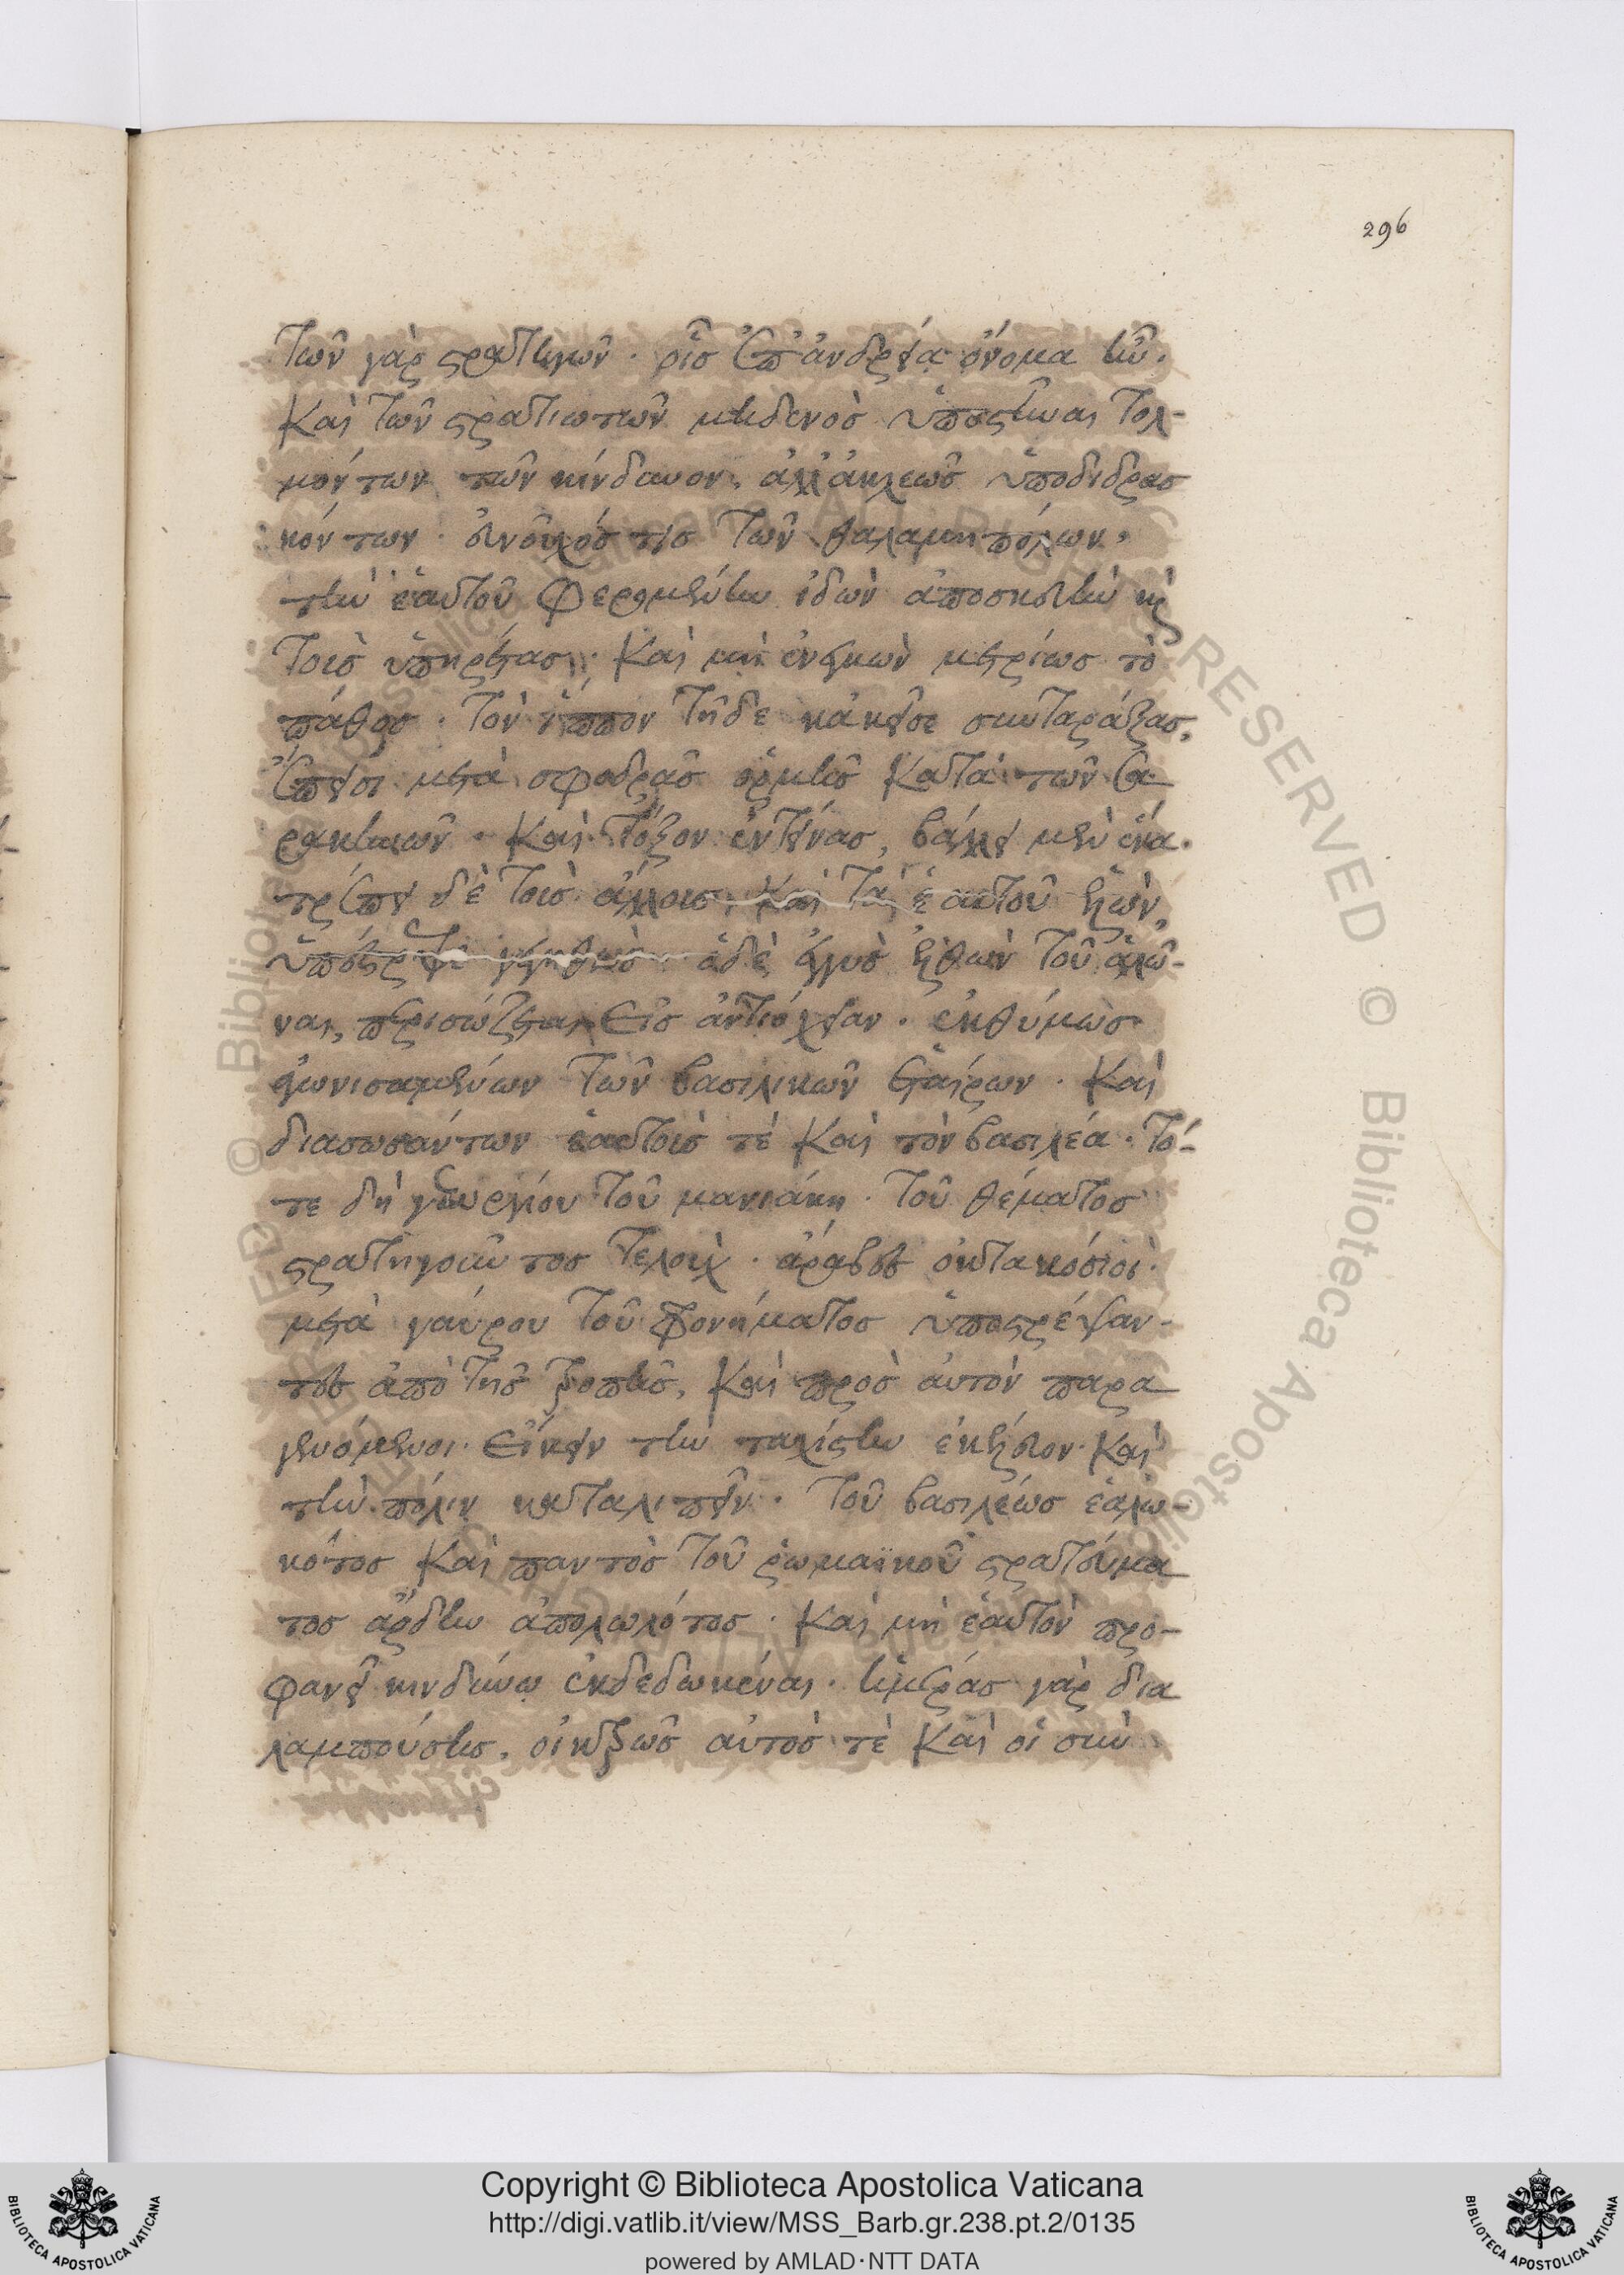 296
τῶν γὰρ στρατηγῶν. οἷς ἐπ' ἀνδρεία ὄνομα ἦν.
καὶ τῶν στρατιωτῶν μηδενὸς ὑποστῆναι τολ-
μόντων τὸν κίνδυνον. ἀλλ' ἀκλεῶς ὑποδιδρασ
κόντων. εὐνοῦχός τις τῶν θαλαμηπόλων,
τὴν ἑαυτοῦ φερομένην ἰδὼν ἀποσκευὴν καὶ
τοὺς ὑπηρέτας. καὶ μὴ ἐνεγκὼν μετρίως τὸ
πάθος. τὸν ἵππον τῆδε κἀκεῖσε συνταράξας,
ἔπεισι μετὰ σφοδρᾶς ὁρμῆς κατὰ τῶν σα
ρακηνῶν. καὶ τόξον ἐντείνας, βάλλει μὲν ἕνα.
τρέπει δὲ τοὺς ἄλλους. καὶ τὰ ἑαυτοῦ ἑλὼν,
ὑπέστρεψε γεγηθὼς. ὁ δὲ ἐγγὺς ἐλθὼν τοῦ ἁλῶ-
ναι, περισώζεται εἰς ἀντιόχειαν. ἐκθύμως
ἀγωνισαμένων τῶν βασιλικῶν ἑταίρων. καὶ
διασωσάντων ἑαυτοὺς τὲ καὶ τὸν βασιλέα. τό-
τε δὴ γεωργίου τοῦ μανιάκη. τοῦ θέματος
στρατηγοῦντος τελοὺχ. ἄραβες ὀκτακόσιοι
μετὰ γαύρου τοῦ φρονήματος ὑποστρέψαν-
τες ἀπὸ τῆς τροπῆς, καὶ πρὸς αὐτὸν παρα
γενόμενοι. εἴκειν τὴν ταχίστην ἐκέλευον. καὶ
τὴν πόλιν καταλιπεῖν. τοῦ βασιλέως ἑαλω-
κότος καὶ παντὸς τοῦ ῥωμαϊκοῦ στρατεύμα
τος ἄρδην ἀπολωλότος. καὶ μὴ ἑαυτὸν προ-
φανεῖ κινδύνω ἐκδεδωκέναι. ἡμέρας γὰρ δια
λαμπούσης, οἰκτρῶς αὐτὸς τὲ καὶ οἱ σὺν
Copyright © Biblioteca Apostolica Vaticana
http://digi.vatlib.it/view/MSS_Barb.gr.238.pt.2/0135
powered by AMLAD·NTT DATA
BIBLIOTECA APOSTOLICA VATICANA
BIBLIOTECA APOSTOLICA VATICANA